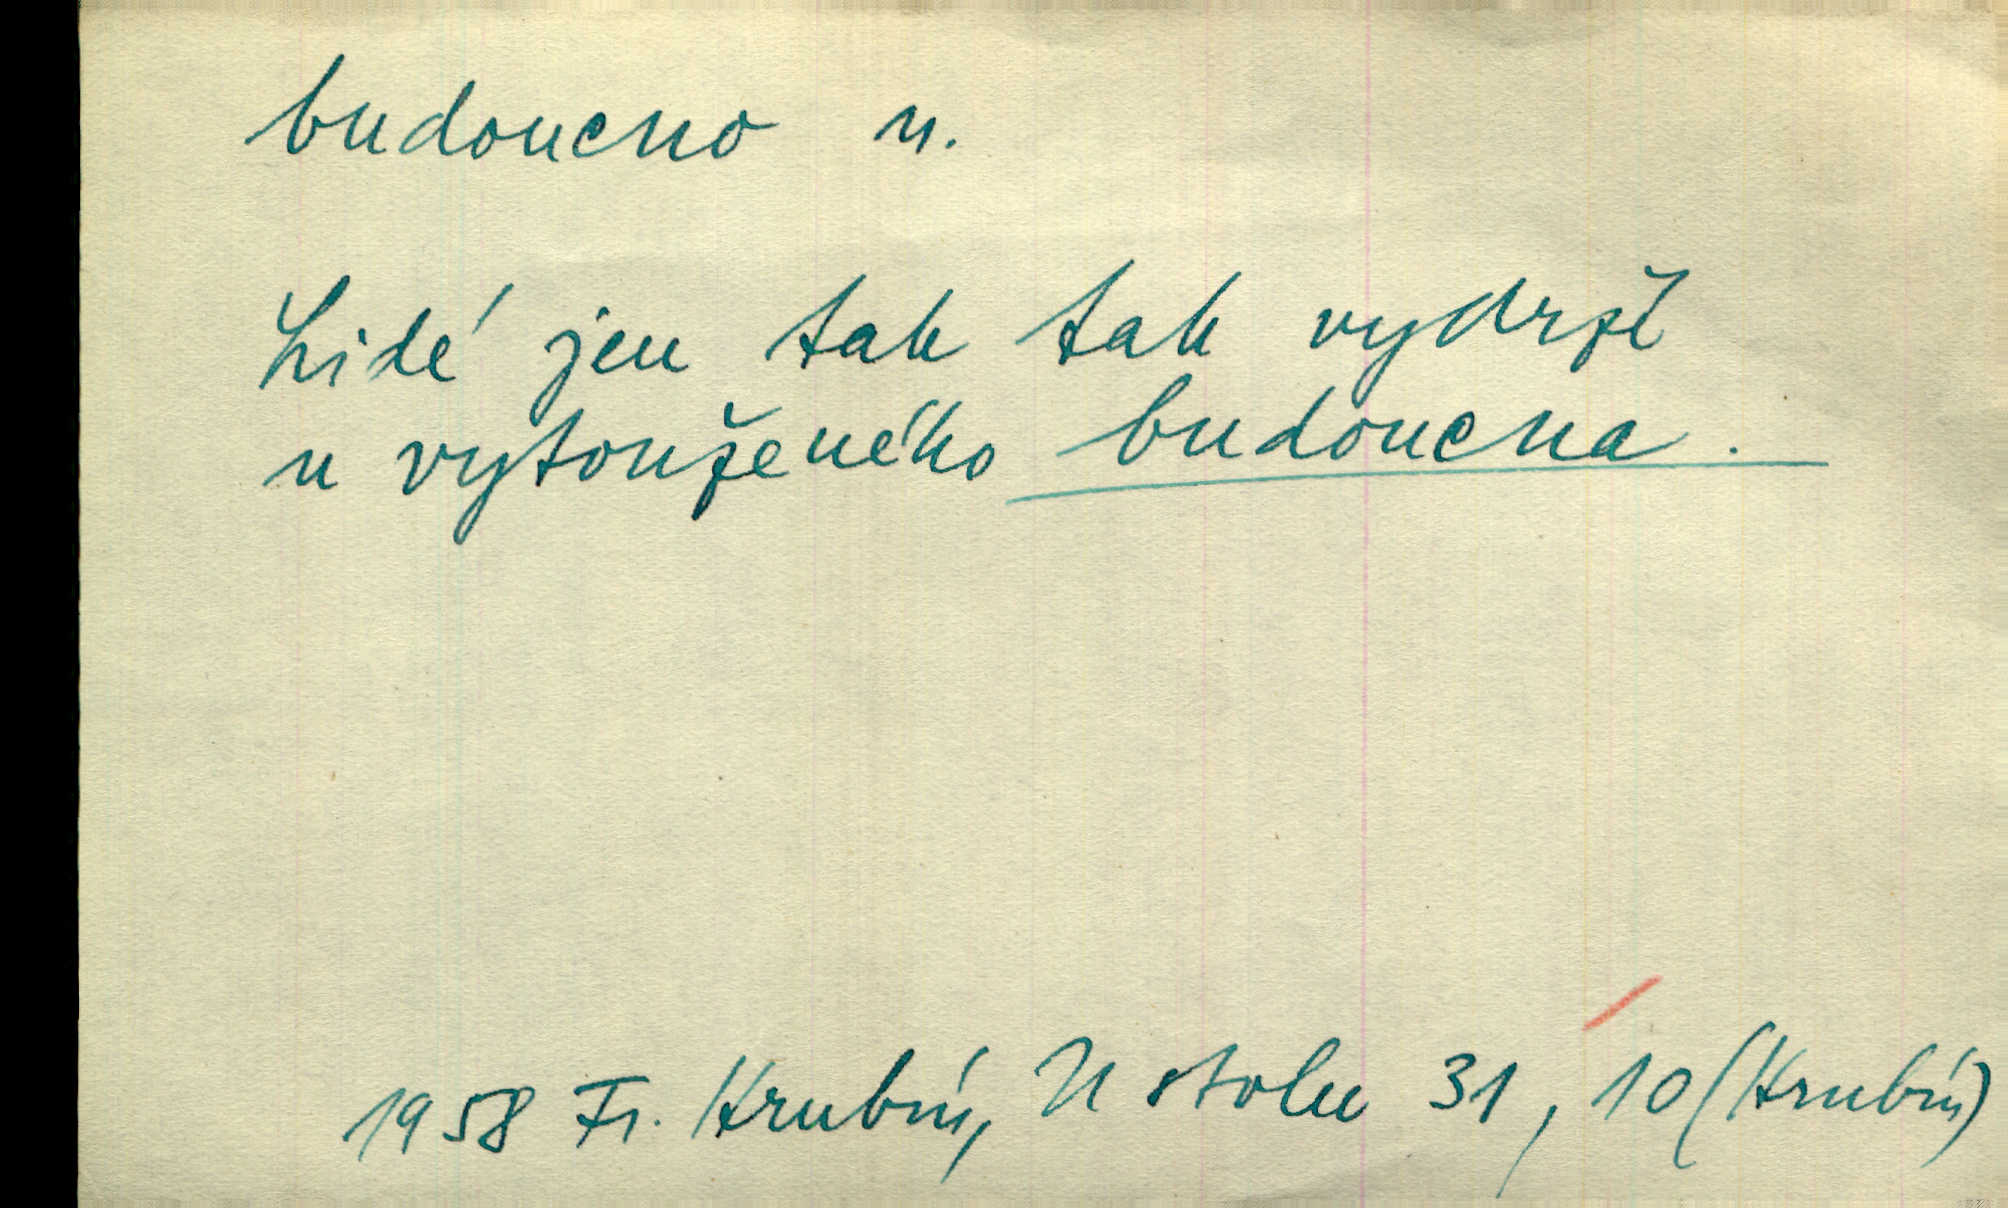 budoucno n.
Lidé jen tak tak vydrží
u vytouženého budoucna.
1958 Fr. Hrubín, U stolu 31, 10 (Hrubín)